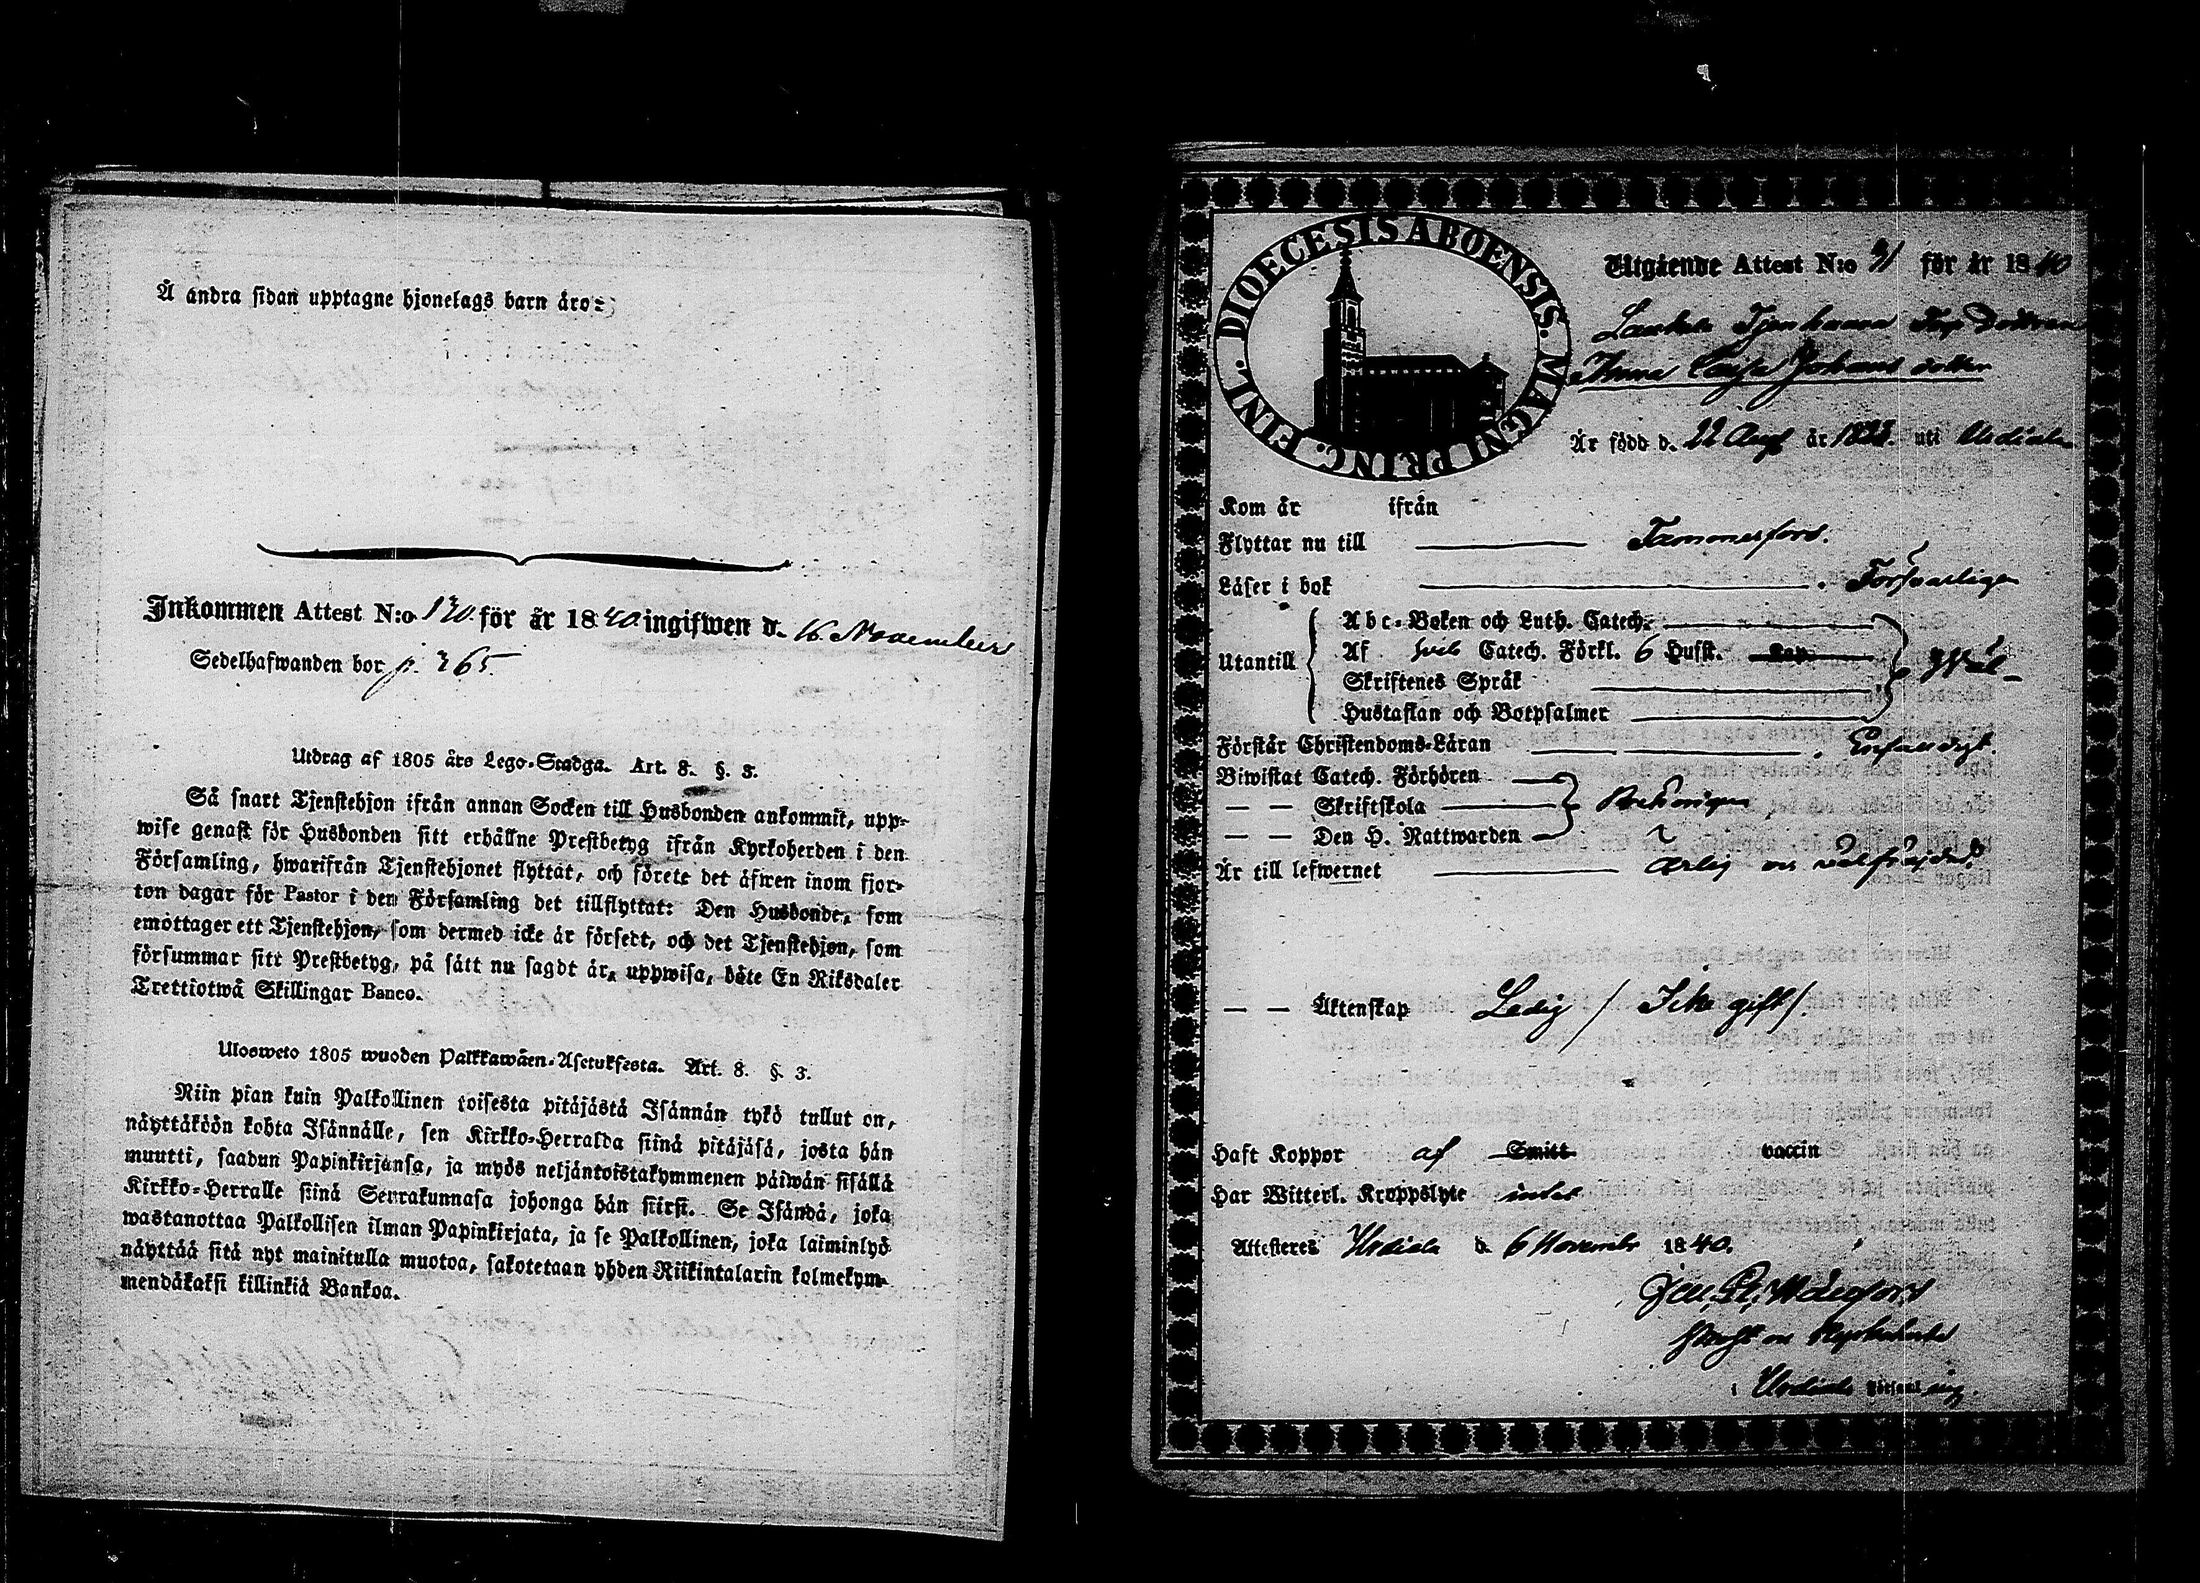 Å andra sidan upptagne hjonelags barn äro:
Inkommen Attest N:o 130 för år 1840 ingifwen d. 16 November
Sedelhafwanden bor p. 365.
Utdrag af 1805 års Lego-Stadga. Art. 8. §. 3.
Så snart Tjenstehjon ifrån annan Socken till Husbonden ankommit, upp-
wise genast för Husbonden sitt erhållne Prestbetyg ifrån Kyrkoherden i den
Församling, hwarifrån Tjenstehjonet flyttat, och förete det äfwen inom fjor-
ton dagar för Pastor i den Församling det tillflyttat: Den Husbonde, som
emottager ett Tjenstehjon, som dermed icke är försedt, och det Tjenstehjon, som
försummar sitt Prestbetyg, på sätt nu sagdt är, uppwisa, böte En Riksdaler
Trettiotwå Skillingar Banco.
Ulosweto 1805 wuoden Palkkawäen-Asetuksesta. Art. 8. §. 3.
Niin pian kuin Palkollinen toisesta pitäjästä Isännän tykö tullut on,
näyttäköön kohta Isännälle, sen Kirkko-Herralda siinä pitäjäsä, josta hän
muutti, saadun Papinkirjansa, ja myös neljäntoistakymmenen päiwän sisällä
Kirkko-Herralle siinä Seurakunnasa johonga hän siirsi. Se Isändä, joka
wastanottaa Palkollisen ilman Papinkirjata, ja se Palkollinen, joka laiminlyö
näyttää sitä nyt mainitulla muotoa, sakotetaan yhden Riikintalarin kolmekym-
mendäkaksi killinkiä Bankoa.
DIOECESIS ABOENSIS. MAGNI PRINC. FINL.
Utgående Attest N:o 91 för år 1840
Johansdotter
Är född d. 22 Aug år uti Urdiala
Kom år ifrån
Flyttar nu till Tammerfors.
Läser i bok Försvarligen
Utantill
Abc-Boken och Luth. Catech.
Af Catech. Förkl. 6 Hufst. Kap
Skriftenes Språk
Hustaflan och Botpsalmer
Väl
Förstår Christendoms-Läran Enfaldigt.
Biwistat Catech. Förhören
— — Skriftskola
— — Den H. Nattwarden
Är till lefwernet ärlig
— — Äktenskap Ledig / Icke gift /.
Haft Koppor af Smitt vaccin
Har Witterl. Kroppslyte intet
Attesteras Urdiala d. 6 November 1840.
i Urdiala Församling.